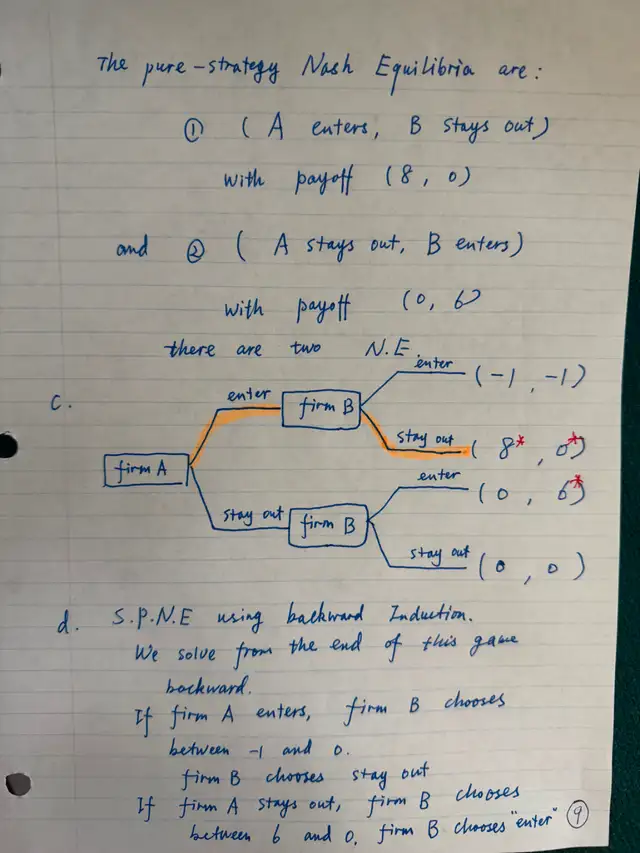 The pure-strategy Nash Equilibria are:
① (A enters, B stays out)
with payoff (8, 0)
and ② (A stays out, B enters)
with payoff (0, 6)
there are two N.E.
c.
enter (-1, -1)
enter firm B
stay out (8*, 0*)
firm A
enter (0, 6*)
stay out firm B
stay out (0, 0)
d. S.P.N.E using backward Induction.
We solve from the end of this game
backward.
If firm A enters, firm B chooses
between -1 and 0.
firm B chooses stay out
If firm A stays out, firm B chooses
between 6 and 0, firm B chooses "enter" ⑨